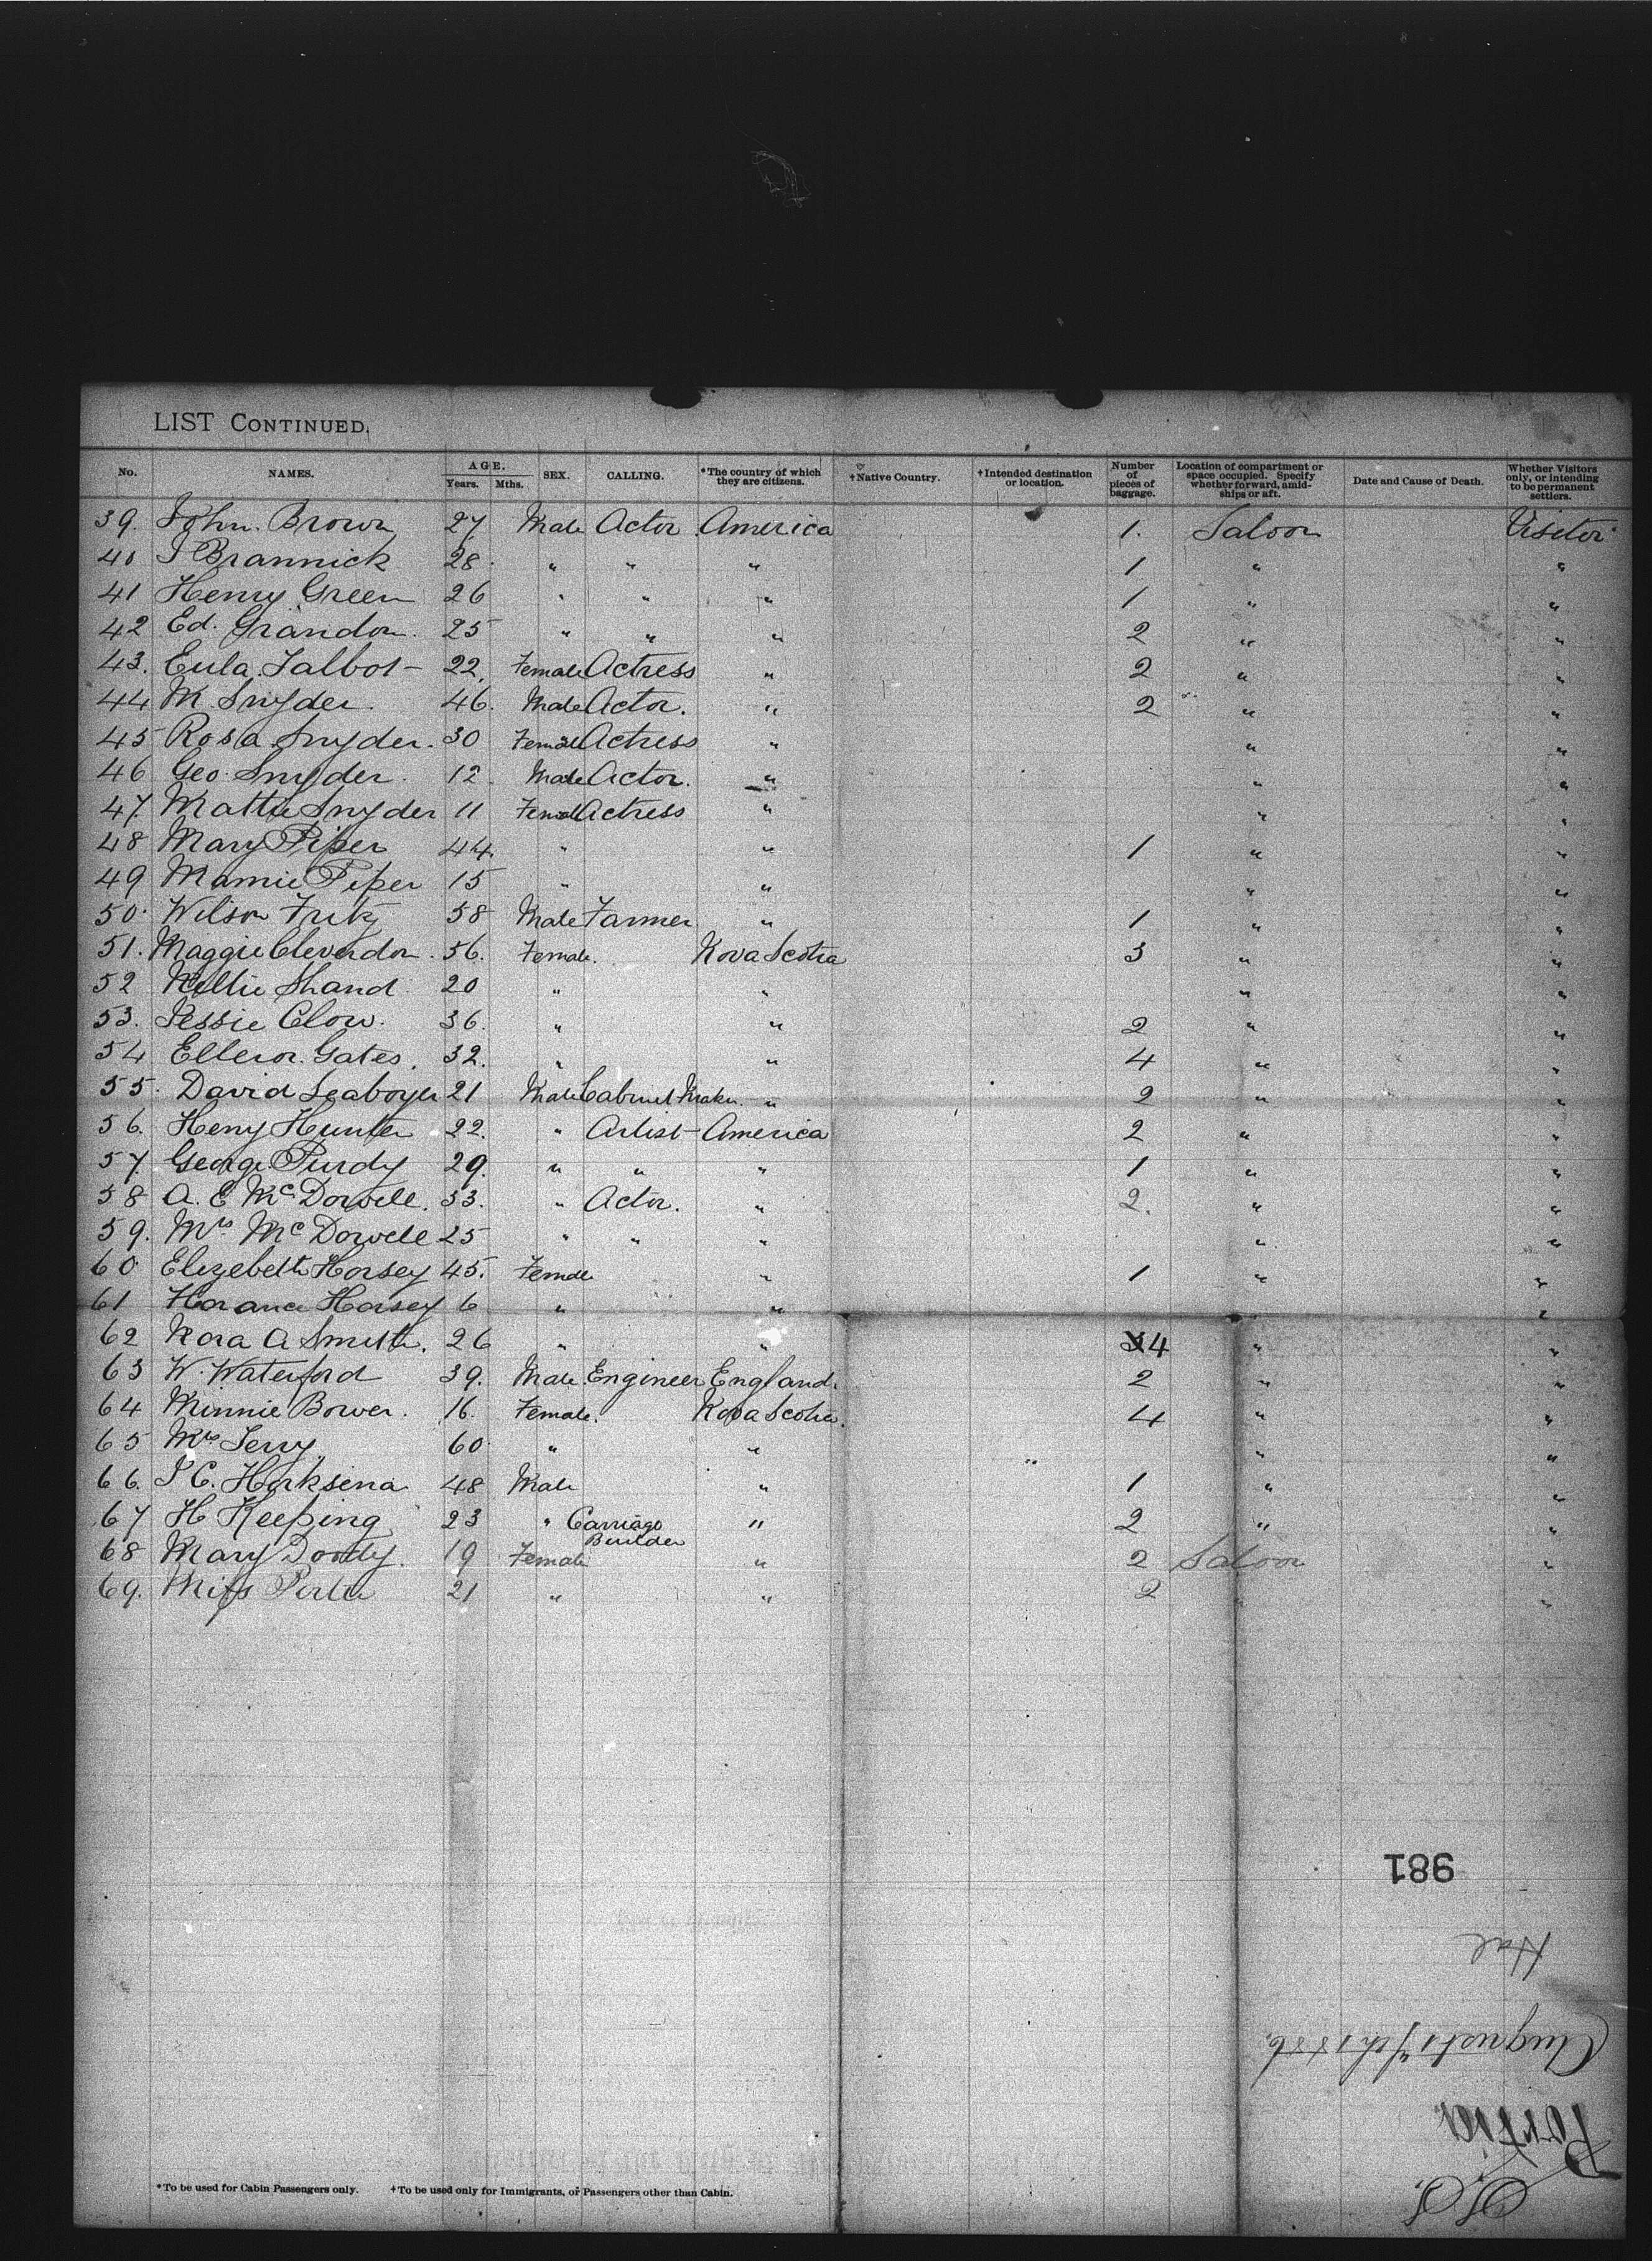 LIST CONTINUED.
No. NAMES. AGE. Years. Mths. SEX. CALLING. *The country of which they are citizens. †Native Country. †Intended destination or location. Number of pieces of baggage. Location of compartment or space occupied. Specify whether forward, amidships or aft. Date and Cause of Death. Whether Visitors only, or intending to be permanent settlers.
39. John. Brown 27 Male Actor America 1. Saloon Visitor
40 J Brannick 28 " " " 1 " "
41 Henry Green 26 " " " 1 " "
42 Ed. Grandon. 25 " " " 2 " "
43. Eula Talbot 22. Female Actress " 2 " "
44 M Snyder. 46. Male Actor. " 2 " "
45 Rosa Snyder. 30 Female Actress " " "
46 Geo. Snyder. 12 Male Actor. " " "
47. Mattie Snyder 11 Female Actress " " "
48 Mary Piper 44. " " 1 " "
49 Mamie Piper 15 " " " "
50. Wilson Fritz 58 Male Farmer " 1 " "
51. Maggie Cleverdon. 56. Female. Nova Scotia 3 " "
52 Nellie Shand 20 " " " "
53. Jessie Clow. 36. " " 2 " "
54 Elleron. Gates. 32. " " 4 " "
55. David Seaboyer 21 Male Cabinet Maker. " 2 " "
56. Heny Hunter 22. " Artist America 2 " "
57. George Purdy 29. " " " 1 " "
58 A. E McDowell. 33. " Actor. " 2. " "
59. Mrs. McDowell 25 " " " " "
60 Elizebeth Horsey 45. Female " 1 " "
61 Horance Horsey 6 " " "
62 Nora A Smith. 26 " " 4 " "
63 W. Waterford 39. Male Engineer England. 2 " "
64 Minnie Bower. 16. Female. Nova Scotia. 4 " "
65 Mrs Terry 60 " " " "
66. J C. Harksena 48 Male " 1 " "
67 H Keeping 23 " Carriage Builder " 2 " "
68 Mary Doody. 19 Female " 2 Saloon "
69. Miss Porter 21 " " 2 " "
981
Hal
August 7th 1886.
Portia
S.S.
*To be used for Cabin Passengers only. †To be used only for Immigrants, or Passengers other than Cabin.